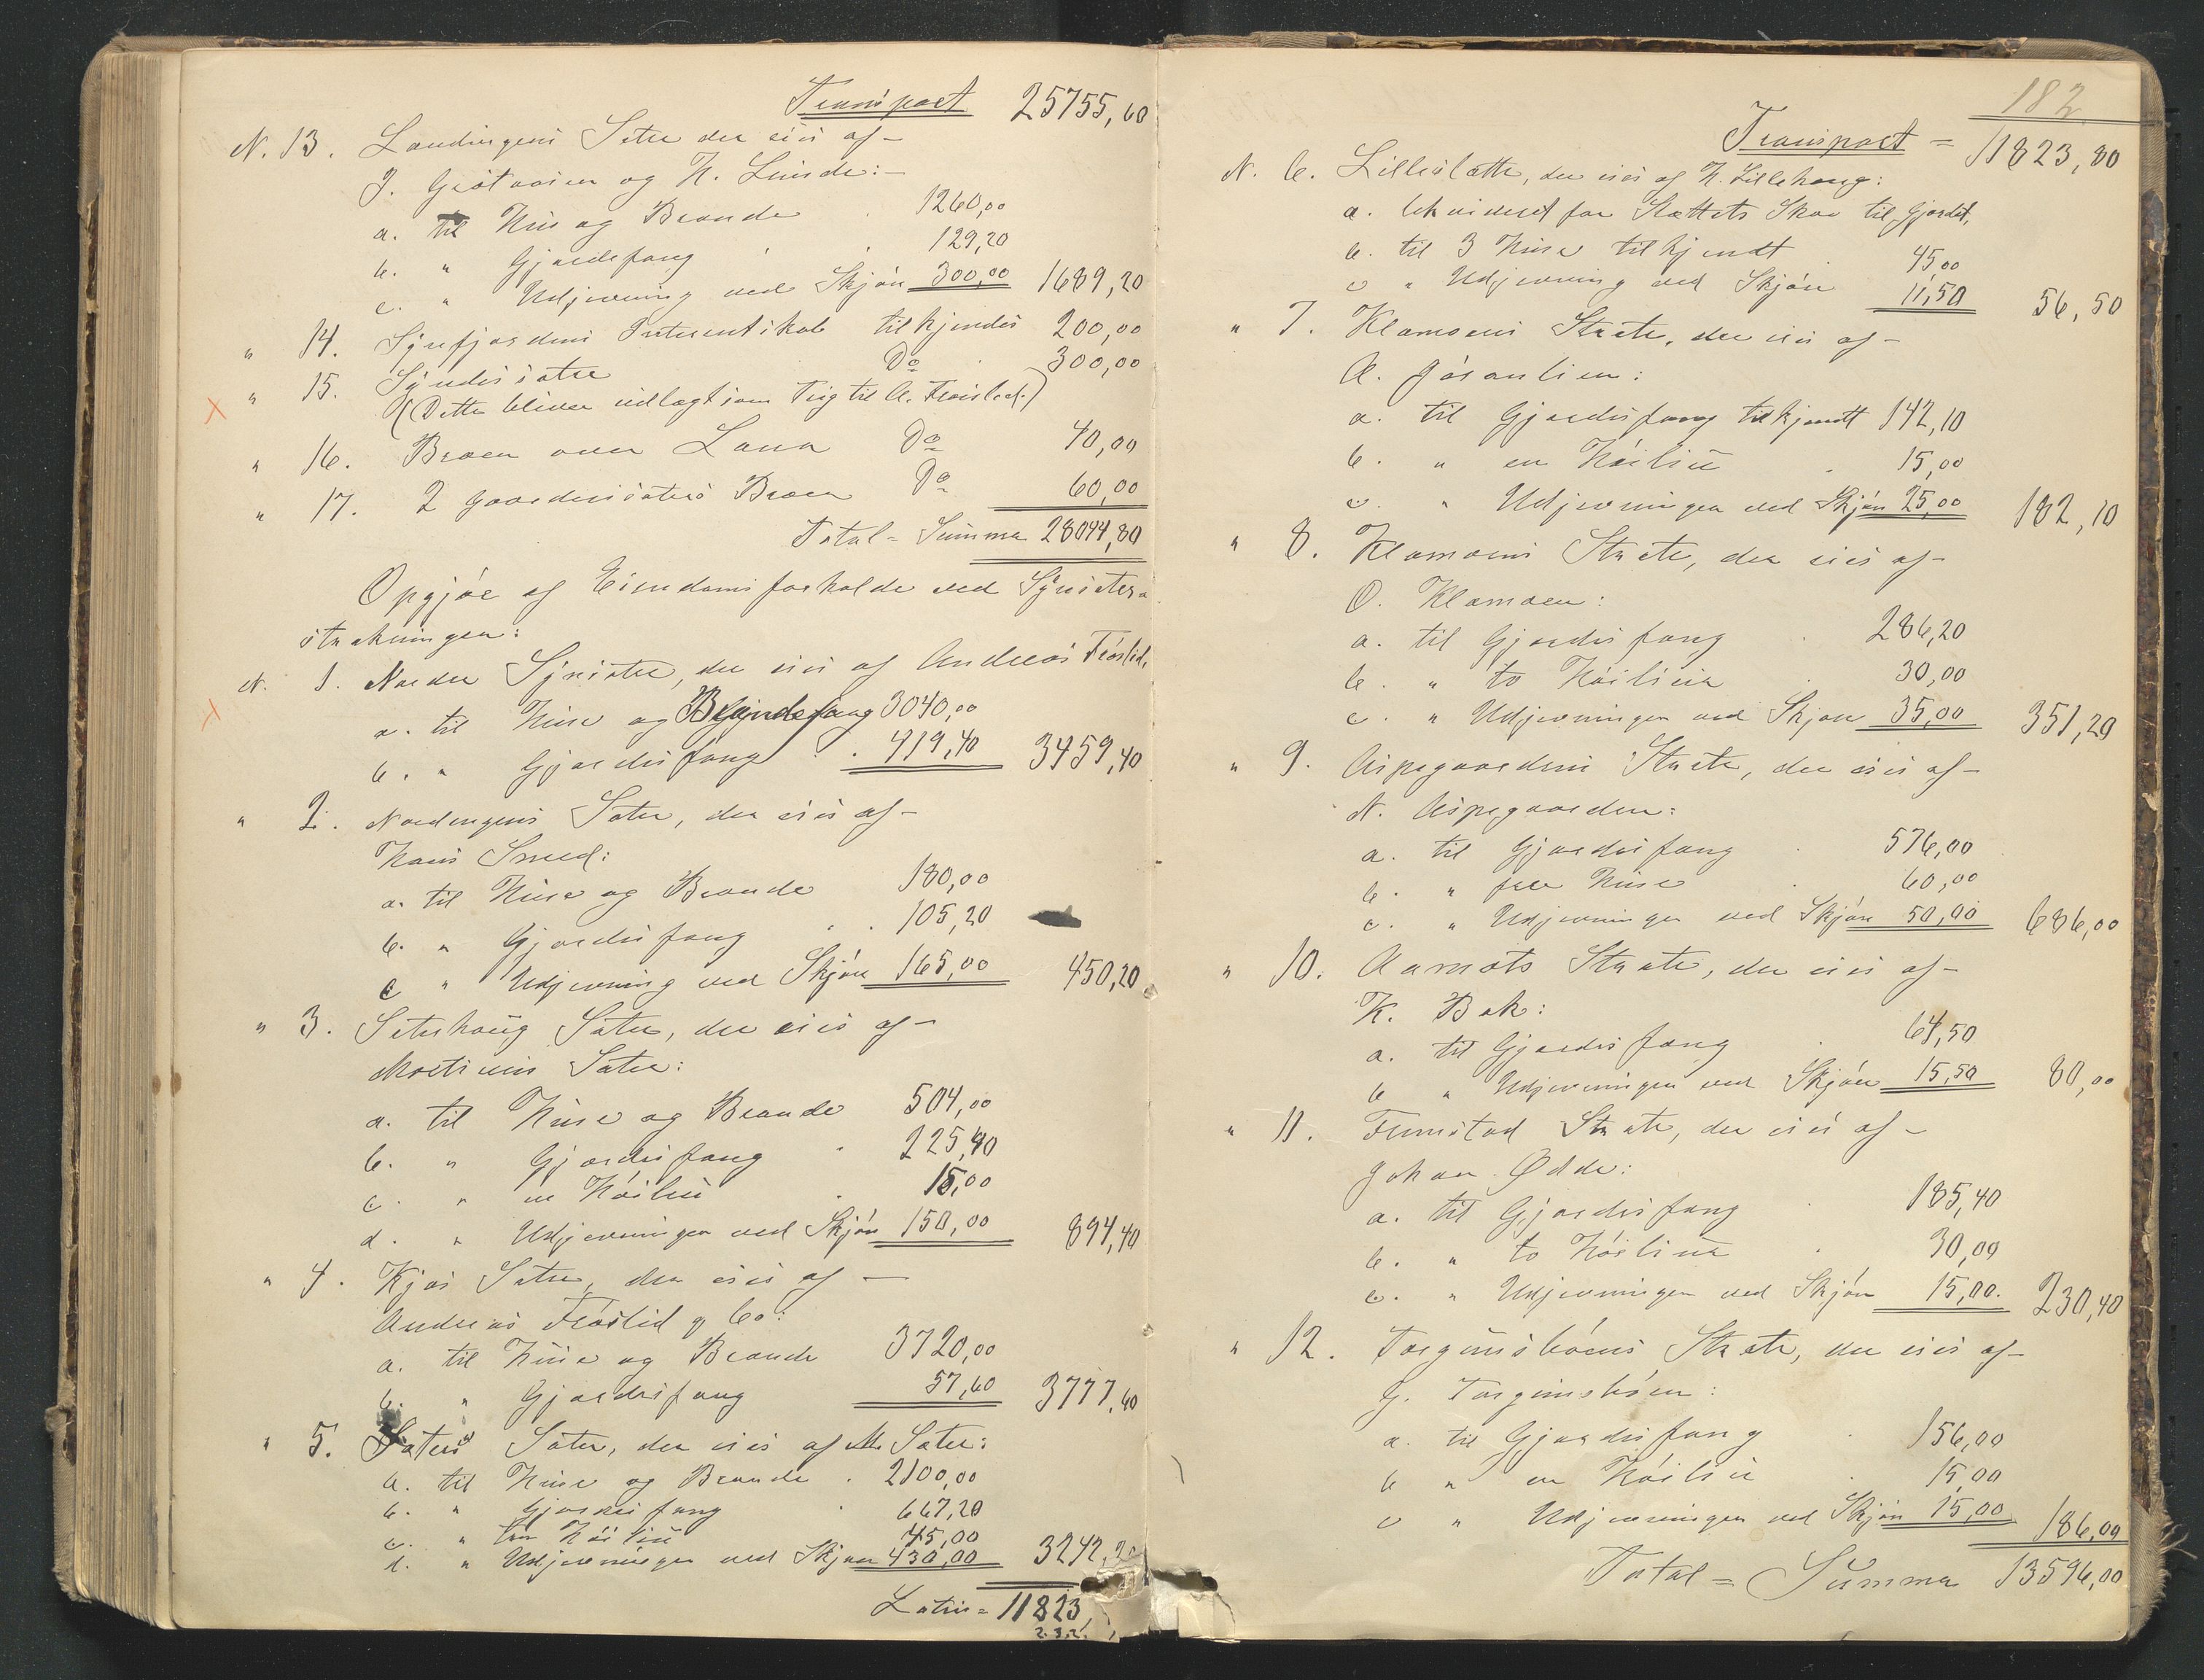 Transport 25755,60
N. 13. Landingens Sæter der eies af –
J. Grötaasen og H. Linde:–
a. til Hus og Brænde 1260,00
b. " Gjærdefang 129,20
c. " Udjevning ved Skjön 300,00 1689,20
" 14. Synfjordens Interentskab tilkjendes 200,00
" 15. Syndissæter Do 300,00
(Dette bliver udlagt som Teig til A. Fröislid.)
" 16. Broen over Lona Do 40,00
" 17. 2 gaardenssæters Broen Do 60,00
Total = Summa 28044,80
Opgjör af Eiendomsforholde ved Synsæter-
strækningen:
N. 1. Nordre Synsæter, der eies af Andreas Fröslid,
a. til Huse og Brændefang 3040,00
b. " Gjærdesfang 419,40 3459,40
" 2. Nordengens Sæter, der eies af –
Hans Smed:
a. til Huse og Brænde 180,00
b. " Gjærdesfang 105,20
c " Udjevning ved Skjön 165,00 450,20
" 3. Seterhaug Sæter, der eies af –
Martinus Sæter:
a. til Huse og Brænde 504,00
b. " Gjærdesfang 225,40
c. " en Höilöe 15,00
d. " Udjevningen ved Skjön 150,00 894,40
" 4. Kjös Sæter, der eies af –
Andreas Fröslid & Co:
a. til Huse og Brænde 3720,00
b. " Gjærdesfang 57,60 3777,60
" 5. Sæters Sæter, der eies af M. Sæter:
a. til Huse og Brænde 2100,00
b. " Gjærdesfang 667,20
c. " tre Höilöe 45,00
d. " Udjevningen ved Skjön 430,00 3242,20
Latus = 11823,
182
Transport = 11823,80
N. 6. Lilleslætte, der eies af H. Lillehaug:
a. til 3 Huse tilkjendt 45,00
c " Udjevning ved Skjön 11,50 56,50
" 7. Klomoens Stræte, der eies af –
A. Jöranlien:
a. til Gjærdesfang tilkjendt 142,10
b. " en Höilöe 15,00
c. " Udjevningen ved Skjön 25,00 182,10
" 8. Klomoens Stræte, der eies af –
O. Klomoen:
a. til Gjærdesfang 286,20
b. " to Höilöer 30,00
c. " Udjevningen ved Skjön 35,00 351,20
" 9. Aspegaardens Stræte, der eies af –
N. Aspegaarden:
a. til Gjærdesfang 576,00
b. " fire Huse 60,00
c. " Udjevningen ved Skjön 50,00 686,00
" 10. Aamots Stræte, der eies af –
K. Bek:
a. til Gjærdesfang 64,50
b " Udjevningen ved Skjön 15,50 80,00
" 11. Finnstad Stræte, der eies af –
Johan Ødde:
a. til Gjærdesfang 185,40
b. " to Höilöer 30,00
c. " Udjevningen ved Skjön 15,00. 230,40
" 12. Torgunsböens Stræte, der eies af –
G. Torgunsböen:
a. til Gjærdesfang 156,00
b " en Höilöe 15,00
c " Udjevningen ved Skjön 15,00 186,00
Total = Summa 13596,00